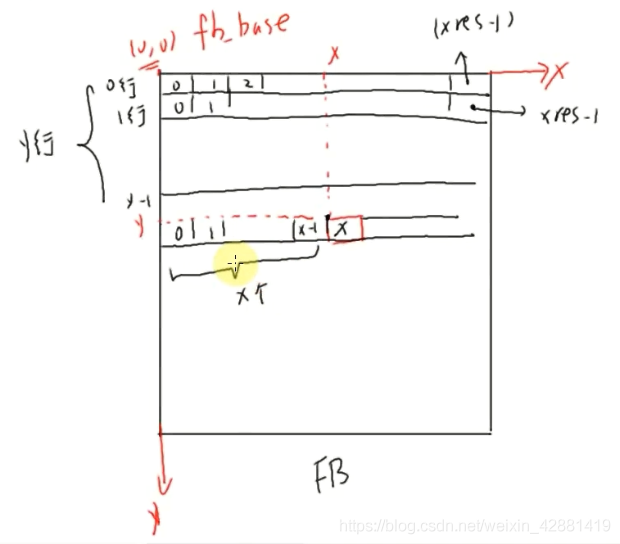 (0,0) fb_base
x
(xres-1)
x
0行 0 1 2
1行 0 1
xres-1
y行
y-1
y
0 1 x-1 x
x个
y
FB
https://blog.csdn.net/weixin_42881419